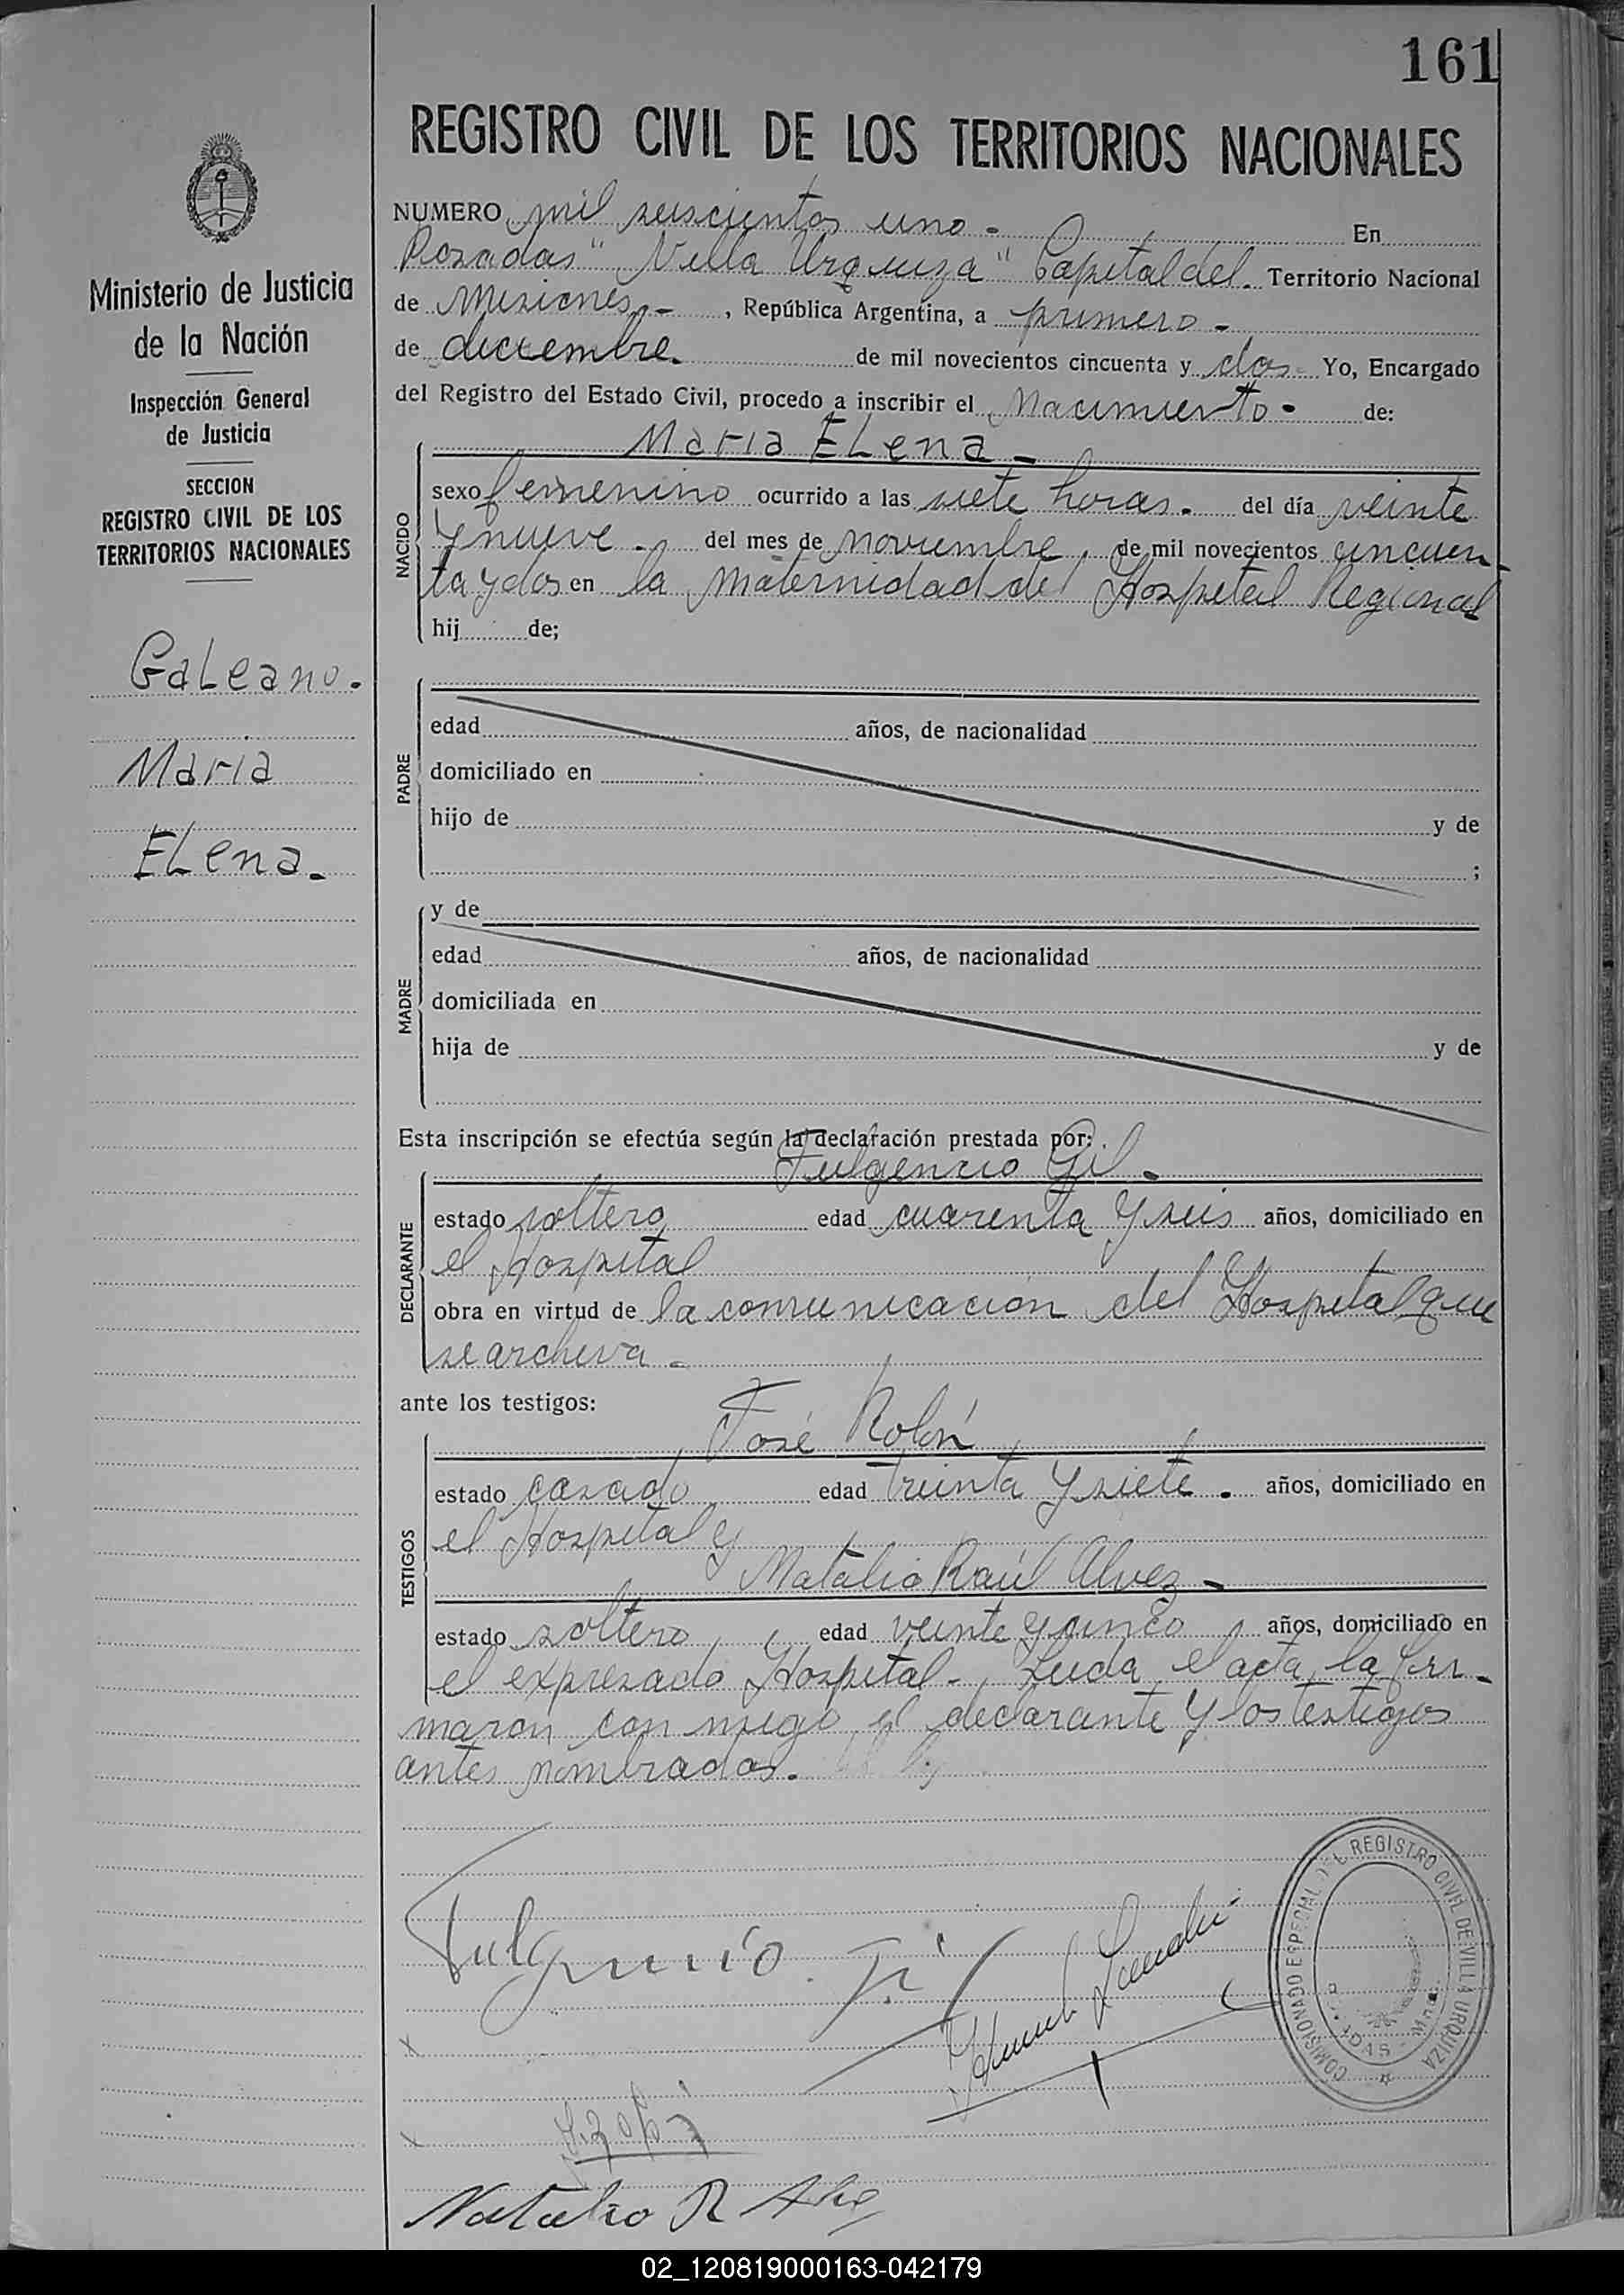 161
REGISTRO CIVIL DE LOS TERRITORIOS NACIONALES
Ministerio de Justicia
de la Nación
Inspección General
de Justicia
SECCION
REGISTRO CIVIL DE LOS
TERRITORIOS NACIONALES
Galeano.
Maria
Elena.
NUMERO mil seiscientos uno - En
Posadas "Villa Urquiza" Capital del. Territorio Nacional
de Misiones.-, República Argentina, a primero -
de diciembre. de mil novecientos cincuenta y dos Yo, Encargado
del Registro del Estado Civil, procedo a inscribir el Nacimiento - de:
Maria Elena -
NACIDO
sexo femenino ocurrido a las siete horas. del día veinte
y nueve. del mes de noviembre, de mil novecientos cincuen-
ta y dos en la Maternidad del Hospital Regional
hij de;
PADRE
edad años, de nacionalidad
domiciliado en
hijo de y de
;
MADRE
y de
edad años, de nacionalidad
domiciliada en
hija de y de
Esta inscripción se efectúa según la declaración prestada por:
Fulgencio Gil.
DECLARANTE
estado soltero edad cuarenta y seis años, domiciliado en
el Hospital
obra en virtud de la comunicación del Hospital que
se archiva -
ante los testigos:
José Rolón
TESTIGOS
estado casado edad treinta y siete. años, domiciliado en
el Hospital y
Natalio Raúl Alvez -
estado soltero edad veinte y cinco años, domiciliado en
el expresado Hospital - Leida el acta, la fir-
maron con migo el declarante y los testigos
antes nombrados.
Fulgencio Gil
COMISIONADO ESPECIAL DEL REGISTRO CIVIL DE VILLA URQUIZA
Natalio R Alvez
02_120819000163-042179